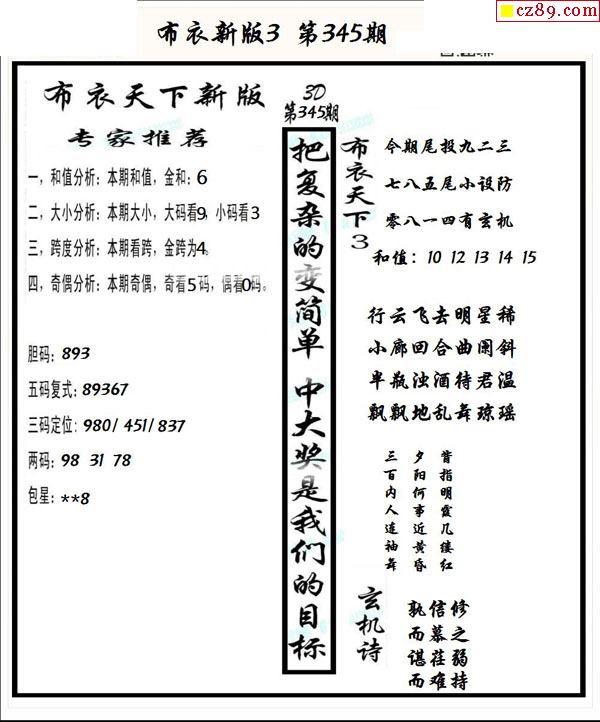 cz89.com
布衣新版3 第345期
布衣天下新版
专家推荐
一，和值分析：本期和值，金和：6
二、大小分析：本期大小，大码看9，小码看3
三、跨度分析：本期看跨，金跨为4。
四，奇偶分析：本期奇偶，奇看5码，偶看0码。
胆码：893
五码复式：89367
三码定位：980/ 451/ 837
两码：98 31 78
包星：**8
3D
第345期
把复杂的变简单 中大奖是我们的目标
布衣天下3
今期尾投九二三
七八五尾小设防
零八一四有玄机
和值：10 12 13 14 15
行云飞去明星稀
小廊回合曲阑斜
半瓶浊酒待君温
飘飘地乱舞琼瑶
三百内人连袖舞
夕阳何事近黄昏
肯指明霞几缕红
玄机诗
孰信修
而慕之
谌荏弱
而难持